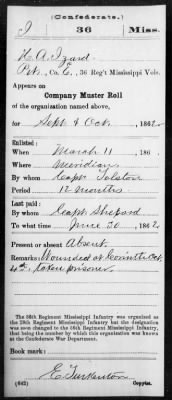 (Confederate.)
I 36 Miss.
H. A. Izard
Pvt., Co. E, 36 Reg't Mississippi Vols.
Appears on
Company Muster Roll
of the organization named above,
for Sept & Oct, 1862.
Enlisted:
When March 11, 186
Where Meridian
By whom Capt Tolston
Period 12 months.
Last paid:
By whom Capt Shepard
To what time June 30, 1862
Present or absent Absent
Remarks: Wounded at Corinth Oct
4th. taken prisoner.
The 36th Regiment Mississippi Infantry was organized as
the 28th Regiment Mississippi Infantry but the designation
was soon changed to the 36th Regiment Mississippi Infantry,
that being the number by which this organization was known
at the Confederate War Department.
Book mark:
E. Turkenton
(642) Copyist.